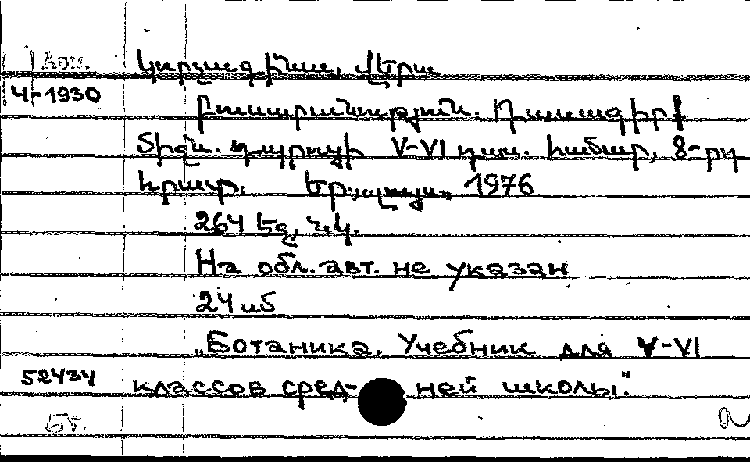 Կորչագինա, Վերա
Ч-1930
Բուսաբանություն. Դասագիրք
Միջն. դպրոցի V-VI դաս. համար, 8-րդ
հրատ. Եր., 1976
264 էջ, նկ.
На обл. авт. не указан
24 սմ
„Ботаника. Учебник для V-VI
52434 классов сред- ней школы."